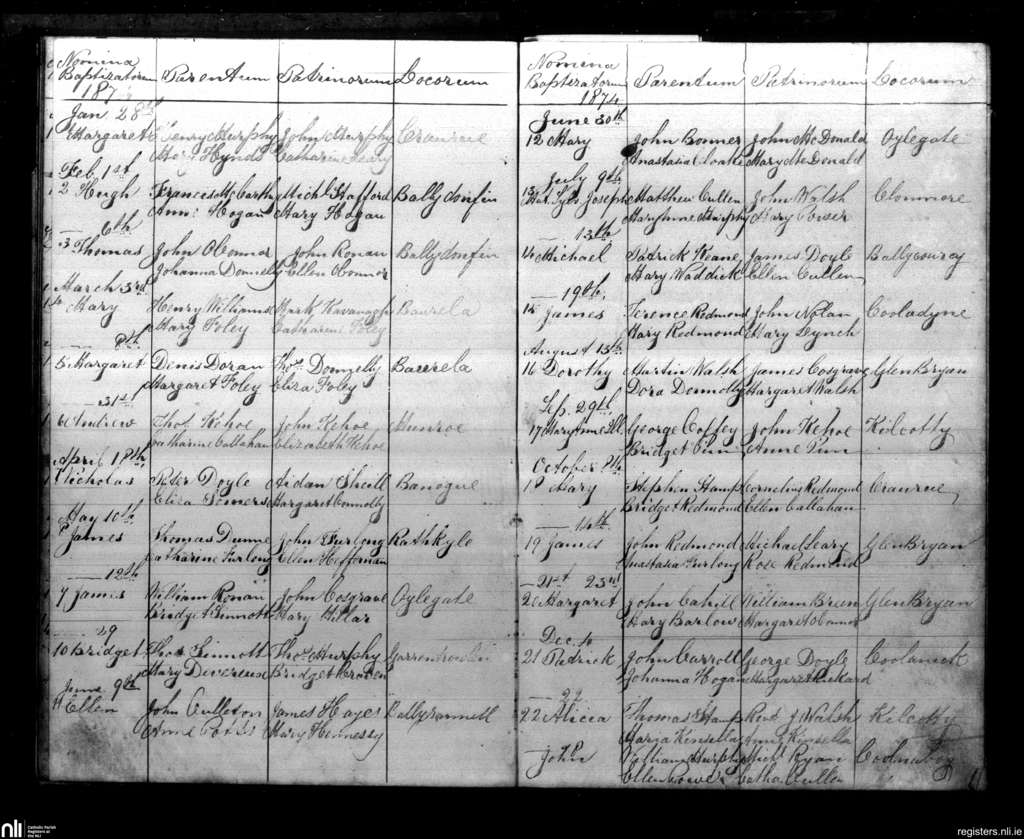 Nomina
Baptizatorum Parentum Patrinorum Locorum
187
Jan 28th
1 Margaret Henry Murphy John Murphy Craurue
Mary Hynds Catharine Leary
Feb. 1st
2 Hugh Francis McCarthy Michl Stafford Ballydonfin
Ann Hogan Mary Hogan
6th
3 Thomas John OConnor John Ronan Ballydonfin
Johanna Donnelly Ellen OConnor
March 3rd
4 Mary Henry Williams Mark Kavanagh Baurela
Mary Foley Catharine Foley
8th
5 Margaret Denis Doran Thos Donnelly Baurela
Margaret Foley Eliza Foley
31st
6 Andrew Thos Kehoe John Kehoe Munroe
Catharine Callahan Elizabeth Kehoe
April 18th
7 Nicholas Peter Doyle Aidan Sheill Banogue
Eliza Somers Margaret Connolly
May 10th
James Thomas Dunne John Furlong Rathkyle
Catharine Furlong Ellen Heffernan
12th
James William Ronan John Cosgrave Oylegate
Bridget Sinnott Mary Millar
29
10 Bridget Thos Sinnott Thos Murphy
Mary Devereux Bridget
June 9th
11 Ellen John Culleton James Hayes
Anne Mary Hennessy
Nomina
Baptizatorum Parentum Patrinorum Locorum
1874
June 30th
12 Mary John Bonner John McDonald Oylegate
Anastasia Mary McDonald
July 9th
13 Joseph Matthew Cullen John Walsh Clonmore
MaryAnne Murphy Mary Power
13th
14 Michael Patrick Keane James Doyle Ballycourcy
Mary Waddick Ellen Cullen
19th
15 James Terence Redmond John Nolan Cooladyne
Mary Redmond Mary Lynch
August 13th
16 Dorothy Martin Walsh James Cosgrave GlenBryan
Dora Donnolly Margaret Walsh
Sep. 29th
17 MaryAnne George Coffey John Kehoe Kilcotty
Bridget Anne
October 8th
18 Mary Stephen Stamp Cornelius Redmond Craurue
Bridget Redmond Ellen Callahan
14th
19 James John Redmond Michael Leary GlenBryan
Anastasia Furlong Rose Redmond
23rd
20 Margaret John Cahill William Breen GlenBryan
Mary Barlow Margaret OConnor
Dec. 4
21 Patrick John Carroll George Doyle Coolamick
Johanna Hogan Margaret
22
22 Alicia Thomas Stamp Revd J Walsh Kilcotty
Maria Kinsella Anny Kinsella
John William Murphy Michl Ryan
Ellen Catha Cullen
nli Catholic Parish
Registers at
the NLI
registers.nli.ie